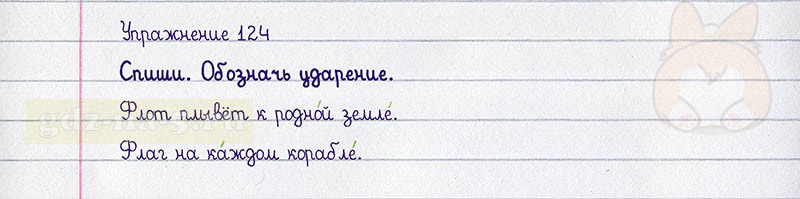 Упражнение 124
Спиши. Обозначь ударение.
Флот плывёт к родно́й земле́.
Флаг на ка́ждом корабле́.
gdz-na-5.ru